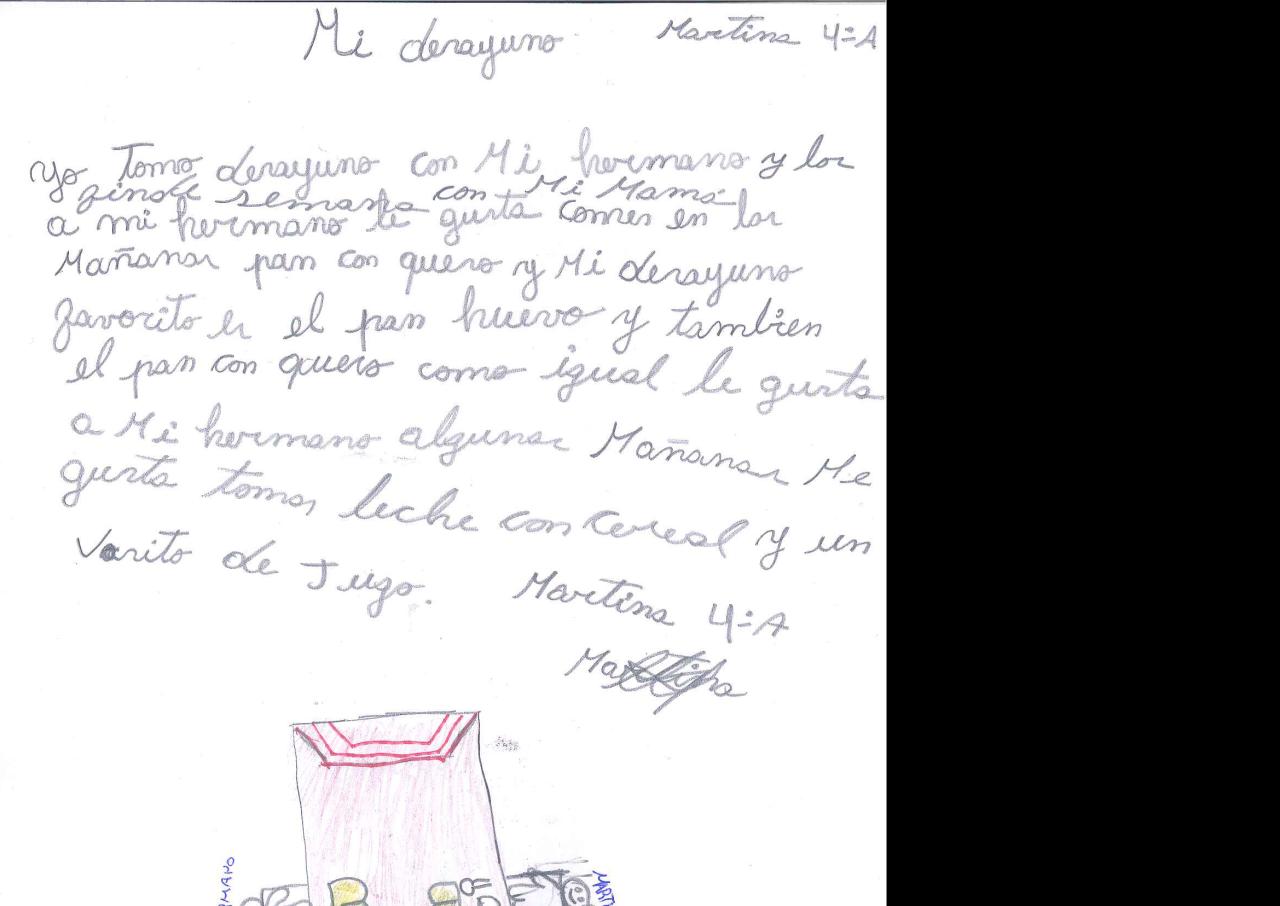 Mi desayuno Martina 4ºA
Yo Tomo desayuno con Mi hermano y los
finde semana con Mi Mamá
a mi hermano le gusta comer en las
Mañanas pan con queso y Mi desayuno
favorito es el pan huevo y tambien
el pan con queso como igual le gusta
a Mi hermano algunas Mañanas Me
gusta tomar leche con Cereal y un
Vasito de Jugo. Martina 4ºA